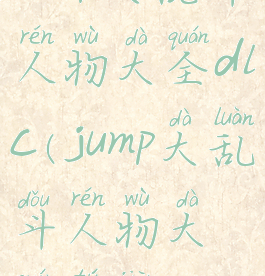 rén wù dà quán
人物大全dl
dà luàn
c(jump大乱
dòu rén wù dà
斗人物大